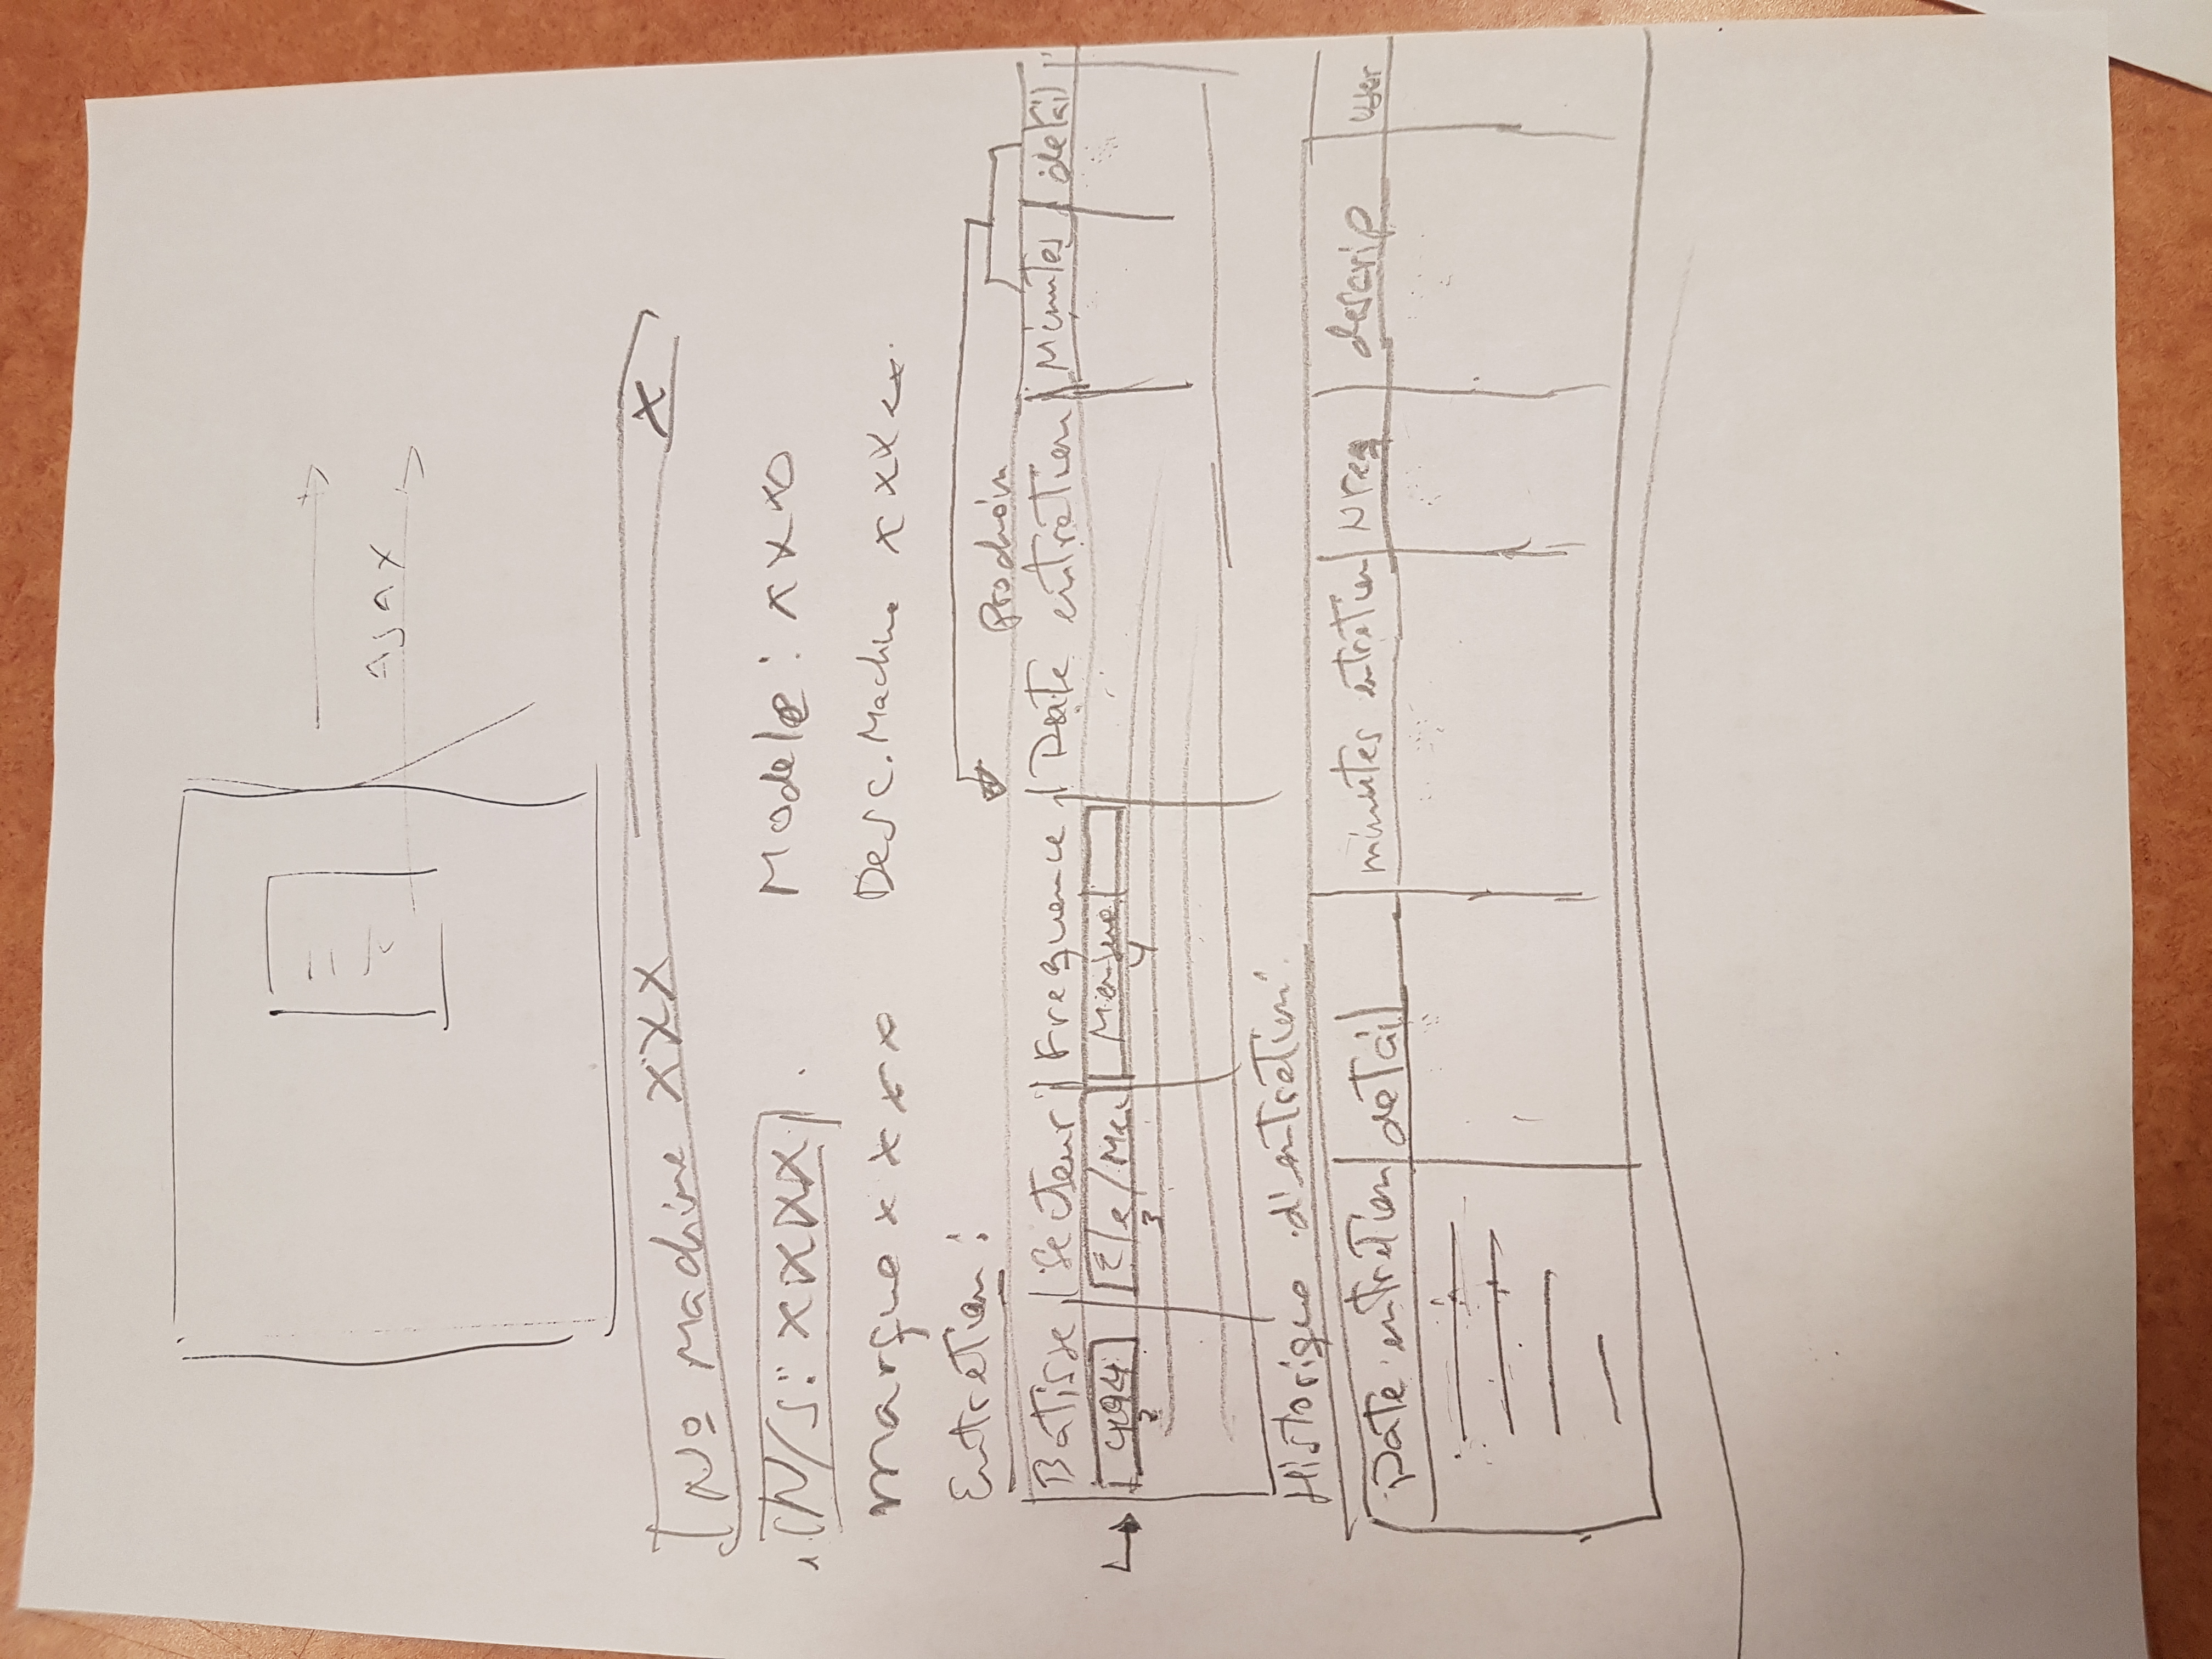 AJAX
No Machine XXX X
N/S: XXXX Modele: XXX
Marque xxxx Desc. Machine xxxxx
Entretien:
Prochain
Batisse Secteur Frequence Date entretien Minutes detail
494 Ele/Mec
2 3 4
Historique d'entretien:
Date entretien detail minutes entretien Nreq descrip user